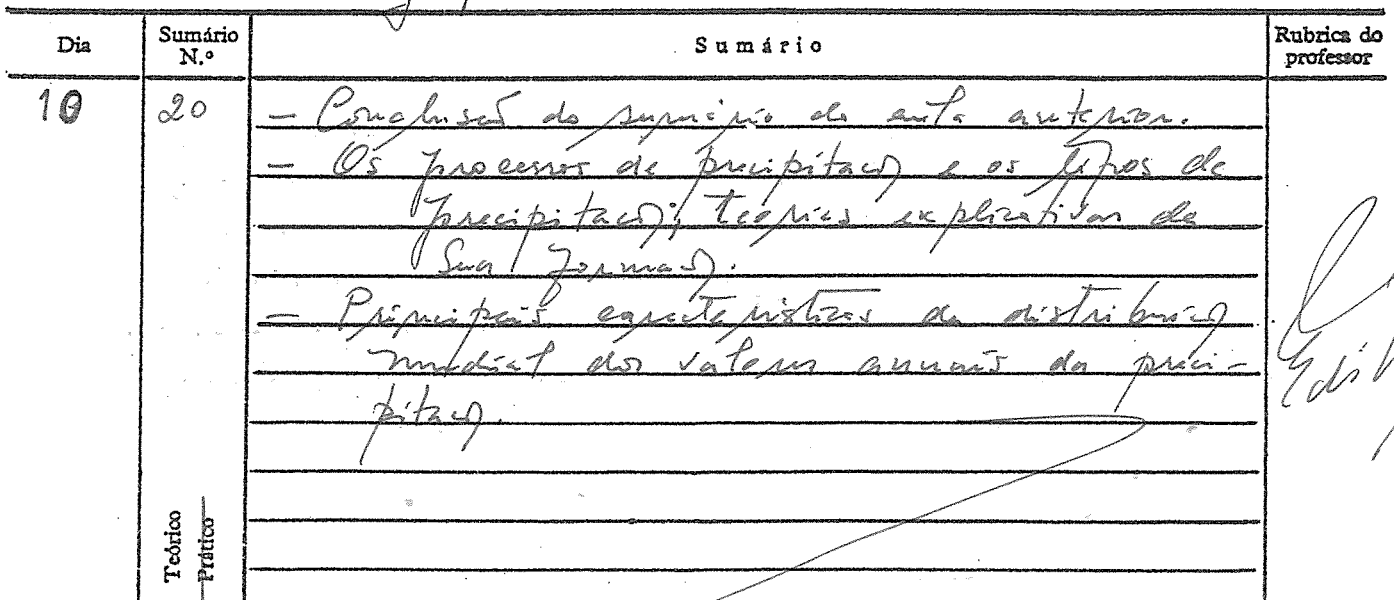 Dia
Sumário N.º
Sumário
Rubrica do professor
10
20
– Conclusão do sumário da aula anterior.
– Os processos de precipitação e os tipos de
precipitação; teorias explicativas da
sua formação.
– Principais características da distribuição
mundial dos valores anuais da preci-
pitação.
Teórico
Prático